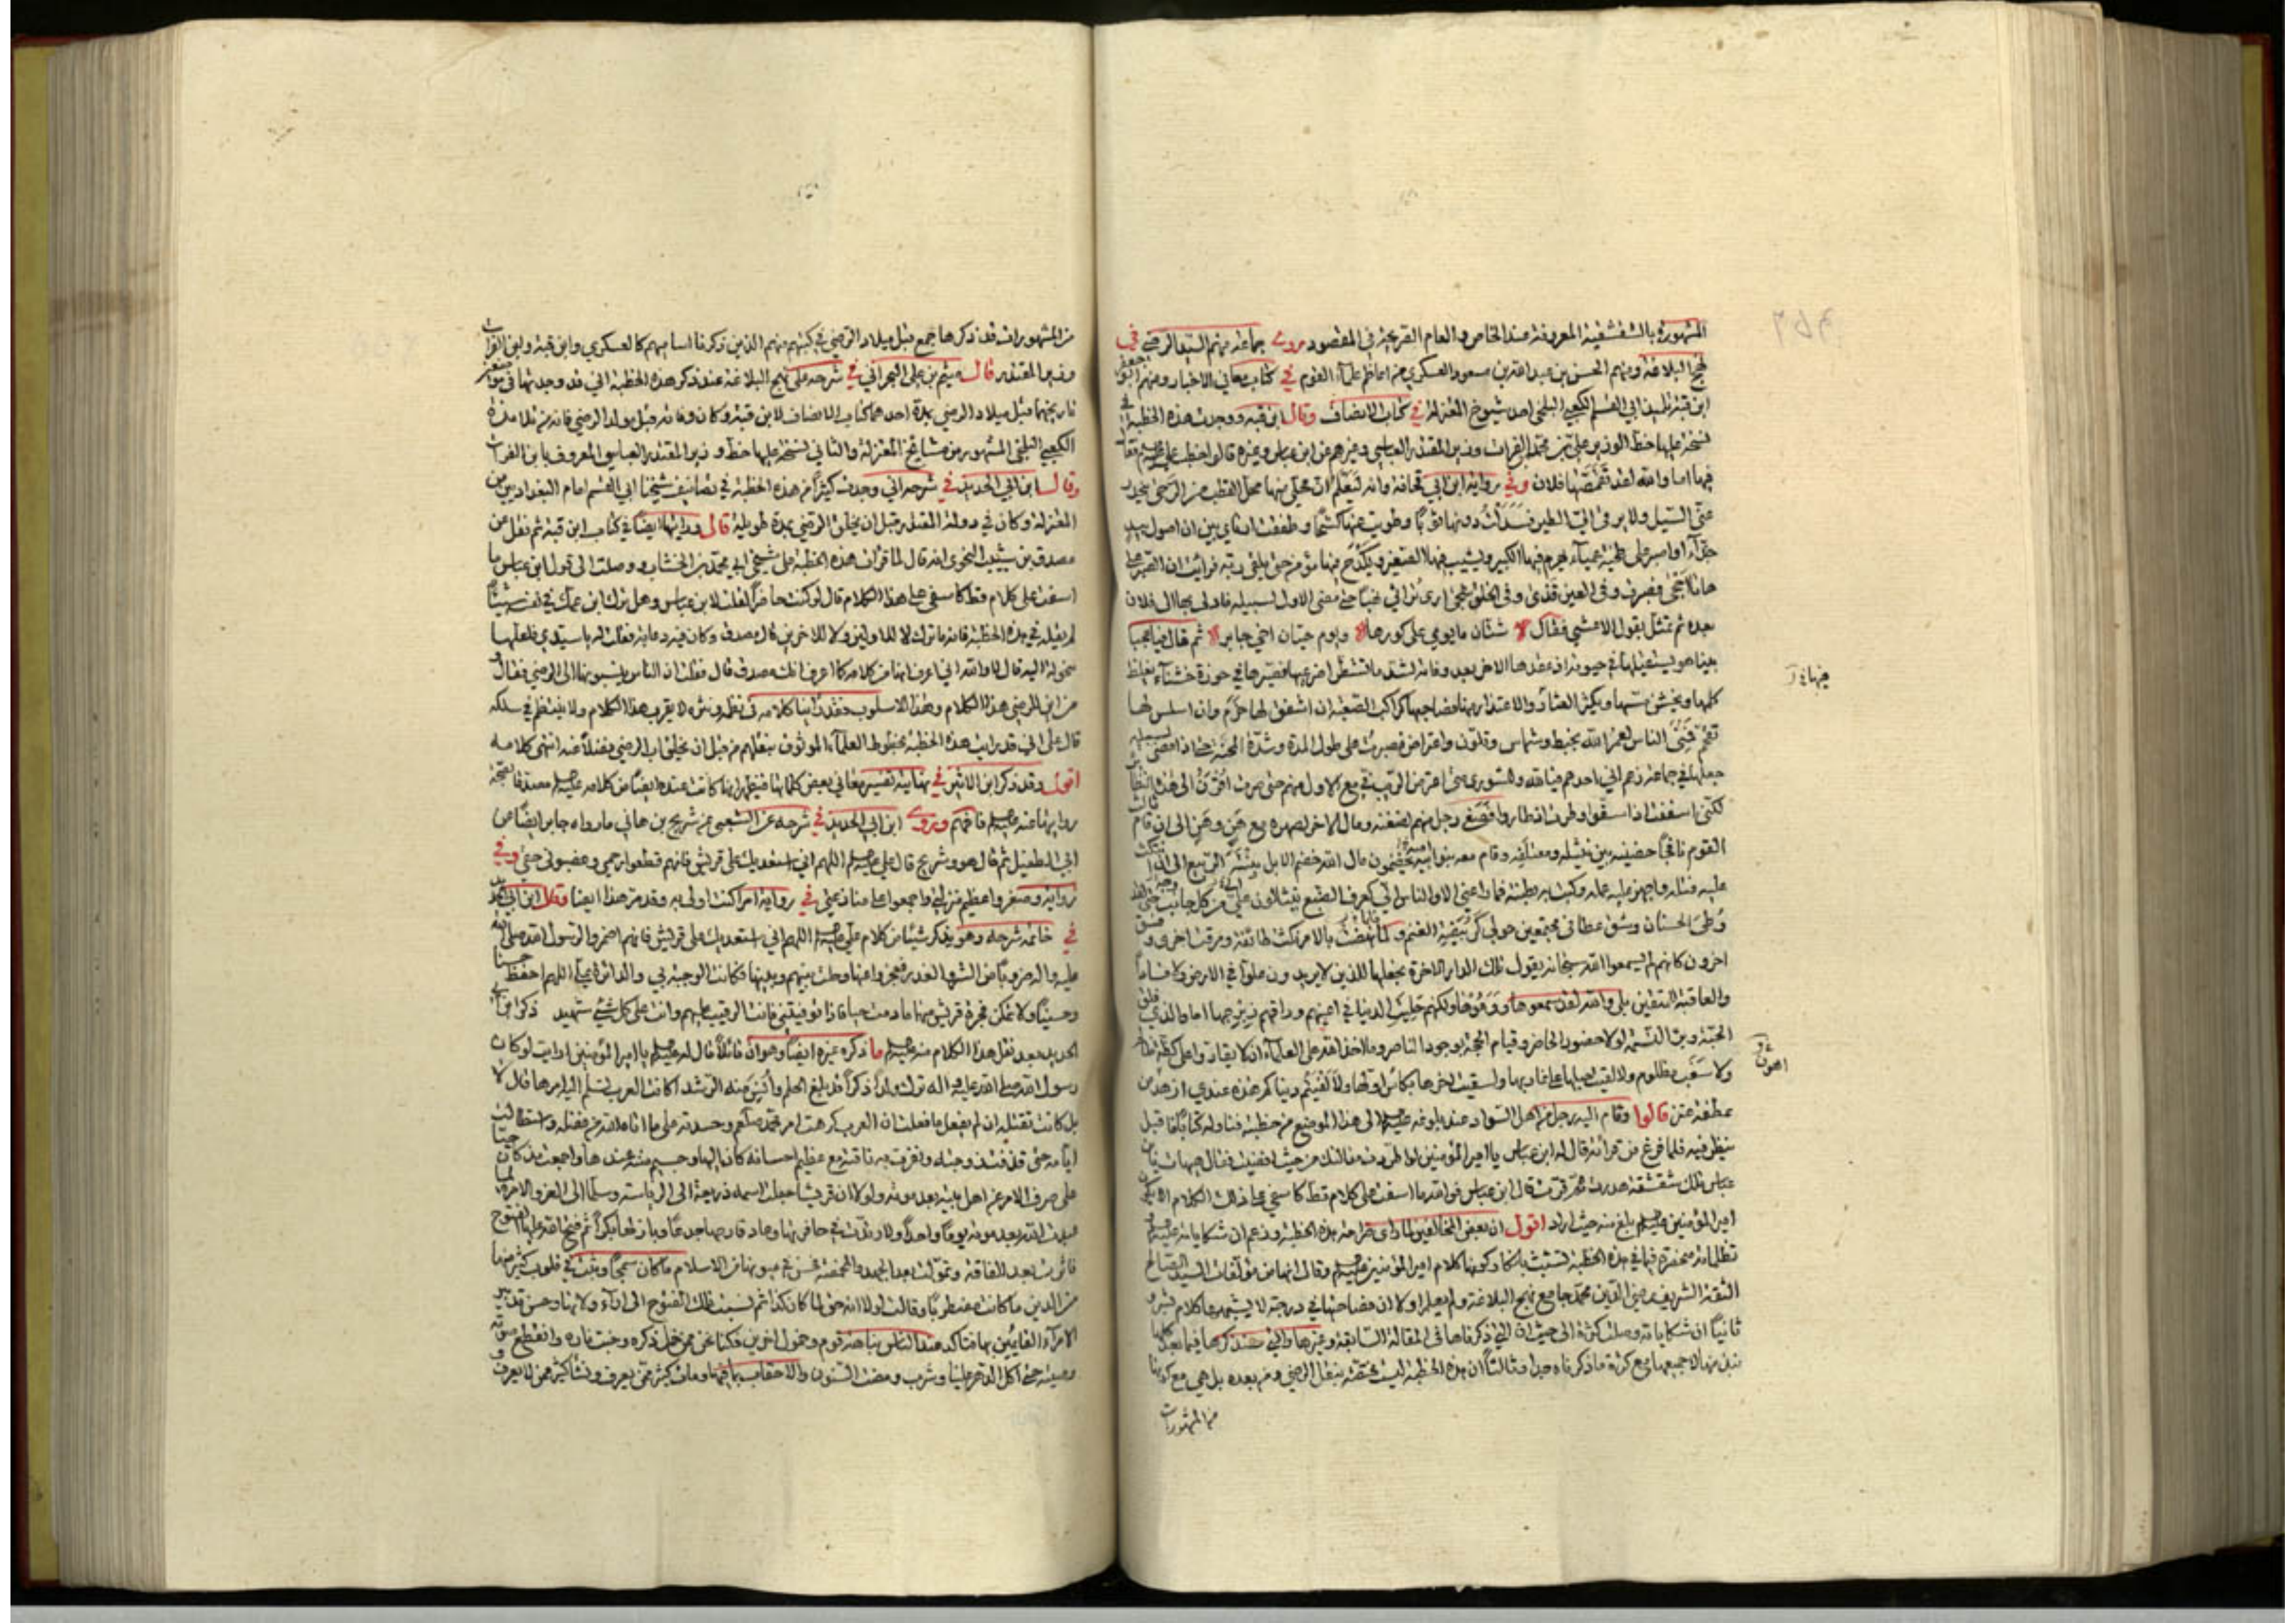 المشهورة بالشقشقية المعروفة عند الخاص والعام الصريحة في المقصود روى جماعة منهم السيد الرضي في
نهج البلاغة ومنهم الحسن بن عبد الله بن مسعود العسكري من اعاظم علماء القوم في كتاب معاني الاخبار ومنهم ابو جعفر
ابن قبة تلميذ ابي القسم الكعبي البلخي احد شيوخ المعتزلة في كتاب الانصاف وقال ابن قبة ووجدت هذه الخطبة في
نسخة عليها خط الوزير علي بن محمد الفرات وزير المقتدر العباسي وغيرهم عن ابن عباس وغيره قالوا خطب علي
فيها اما والله لقد تقمصها فلان وفي رواية ابن ابي قحافة وانه ليعلم ان محلي منها محل القطب من الرحى ينحدر
عني السيل ولا يرقى الي الطير فسدلت دونها ثوبا وطويت عنها كشحا وطفقت ارتأي بين ان اصول بيد
جذاء او اصبر على طخية عمياء يهرم فيها الكبير ويشيب فيها الصغير ويكدح فيها مؤمن حتى يلقى ربه فرأيت ان الصبر على
هاتا احجى فصبرت وفي العين قذى وفي الحلق شجى ارى تراثي نهبا حتى مضى الاول لسبيله فادلى بها الى فلان
بعده ثم تمثل بقول الاعشى فقال شتان ما يومي على كورها ويوم حيان اخي جابر ثم قال فيا عجبا
بينا هو يستقيلها في حيوته اذ عقدها لاخر بعد وفاته لشد ما تشطرا ضرعيها فصيرها في حوزة خشناء يغلظ
كلمها ويخشن مسها ويكثر العثار والاعتذار منها فصاحبها كراكب الصعبة ان اشنق لها خرم وان اسلس لها
تقحم فمني الناس لعمر الله بخبط وشماس وتلون واعتراض فصبرت على طول المدة وشدة المحنة حتى اذا مضى لسبيله
جعلها في جماعة زعم اني احدهم فيا لله وللشورى متى اعترض الريب في مع الاول منهم حتى صرت اقرن الى هذه النظائر
لكني اسففت اذ اسفوا وطرت اذ طاروا فصغى رجل منهم لضغنه ومال الاخر لصهره مع هن وهن الى ان قام ثالث
القوم نافجا حضنيه بين نثيله ومعتلفه وقام معه بنو ابيه يخضمون مال الله خضم الابل نبتة الربيع الى ان انتكث
عليه فتله واجهز عليه عمله وكبت به بطنته فما راعني الا والناس الي كعرف الضبع ينثالون علي من كل جانب حتى لقد
وطئ الحسنان وشق عطافي مجتمعين حولي كربيضة الغنم فلما نهضت بالامر نكثت طائفة ومرقت اخرى وفسق
اخرون كانهم لم يسمعوا الله سبحانه يقول تلك الدار الاخرة نجعلها للذين لا يريدون علوا في الارض ولا فسادا
والعاقبة للمتقين بلى والله لقد سمعوها ووعوها ولكنهم حليت الدنيا في اعينهم وراقهم زبرجها اما والذي فلق
الحبة وبرأ النسمة لولا حضور الحاضر وقيام الحجة بوجود الناصر وما اخذ الله على العلماء ان لا يقاروا على كظة ظالم
ولا سغب مظلوم لالقيت حبلها على غاربها ولسقيت اخرها بكأس اولها ولالفيتم دنياكم هذه عندي ازهد من
عفطة عنز قالوا وقام اليه رجل من اهل السواد عند بلوغه الى هذا الموضع من خطبته فناوله كتابا فاقبل
ينظر فيه فلما فرغ من قرائته قال له ابن عباس يا امير المؤمنين لو اطردت مقالتك من حيث افضيت فقال هيهات يا بن
عباس تلك شقشقة هدرت ثم قرت قال ابن عباس فوالله ما اسفت على كلام قط كاسفي على ذلك الكلام الا يكون
امير المؤمنين بلغ منه حيث اراد اقول ان بعض المخالفين لما رأى صراحة هذه الخطبة وزعم ان شكاياته
تظلماته منحصرة فيما في هذه الخطبة تشبث بانكار كونها كلام امير المؤمنين وقال انها من مؤلفات السيد الصالح
الثقة الشريف رضي الدين محمد جامع نهج البلاغة ولم يعلم اولا ان فصاحتها في درجة لا يشبهها كلام بشر و
ثانيا ان شكاياته وصلت كثرة الى حيث ان التي ذكرناها في المقالة السابقة وغيرها والتي سنذكرها فيما بعد كلها
منها لا جميعها مع كثرة ما ذكرناه جدا وثالثا ان هذه الخطبة ليست مختصة بنقل الرضي ومن بعده بل هي مع كونها
من المشهورات
من المشهورات قد ذكرها جمع قبل ميلاد الرضي في كتبهم منهم الذين ذكرنا اساميهم كالعسكري وابن قبة وابن الفرات
وزير المقتدر قال ميثم بن علي البحراني في شرحه على نهج البلاغة عند ذكر هذه الخطبة اني قد وجدتها في موضعين
تاريخهما قبل ميلاد الرضي بمدة احدهما كتاب الانصاف لابن قبة وكان وفاته قبل مولد الرضي فانه من تلامذة
الكعبي البلخي المشهور من مشايخ المعتزلة والثاني نسخة عليها خط وزير المقتدر العباسي المعروف بابن الفرات
وقال ابن ابي الحديد في شرحه اني وجدت كثيرا من هذه الخطبة في تصانيف شيخنا ابي القسم امام البغداديين من
المعتزلة وكان في دولة المقتدر قبل ان يخلق الرضي بمدة طويلة قال ورايتها ايضا في كتاب ابن قبة ثم نقل عن
مصدق بن شبيب النحوي انه قال لما قرأت هذه الخطبة على شيخي ابي محمد بن الخشاب ووصلت الى قول ابن عباس ما
اسفت على كلام قط كاسفي على هذا الكلام قال لو كنت حاضرا لقلت لابن عباس وهل ترك ابن عمك في نفسه شيئا
لم يقله في هذه الخطبة فانه ما ترك لا للاولين ولا للاخرين قال مصدق وكان فيه دعابة فقلت له يا سيدي فلعلها
منحولة اليه قال لا والله اني اعرف انها من كلامه كما اعرف انك مصدق قال فقلت ان الناس ينسبونها الى الرضي فقال
من اين للرضي هذا الكلام وهذا الاسلوب فقد راينا كلامه في نظمه ونثره لا يقرب هذا الكلام ولا ينتظم في سلكه
قال على اني قد رايت هذه الخطبة بخطوط العلماء الموثوق بنقلهم من قبل ان يخلق اب الرضي فضلا عنه انتهى كلامه
اقول وقد ذكر ابن الاثير في نهايته تفسير معاني بعض كلماتها فيظهر انها كانت عنده ايضا من كلامه معتقدا لصحة
روايتها عنه فافهم وروى ابن ابي الحديد في شرحه عن الشعبي عن شريح بن هاني ما رواه جابر ايضا عن
ابي الطفيل ثم قال هو وشريح قال علي اللهم اني استعديك على قريش فانهم قطعوا رحمي وغصبوني حقي وفي
رواية وصغروا عظيم منزلتي واجمعوا على منازعتي في رواية امرا كنت اولى به وقد مر هذا ايضا ونقل ابن ابي الحديد
في خاتمة شرحه وهو يذكر شيئا من كلام علي اللهم اني استعديك على قريش فانهم اضمروا لرسول الله صلى الله
عليه واله ضروبا من الشر والغدر فعجزوا عنها وحلت بينهم وبينها فكانت الوجبة بي والدائرة علي اللهم احفظ حسنا
وحسينا ولا تمكن فجرة قريش منهما ما دمت حيا فاذا توفيتني فانت الرقيب عليهم وانت على كل شيء شهيد ذكر ابن ابي
الحديد بعد نقل هذا الكلام منه ما ذكره غيره ايضا وهو ان قائلا قال له يا امير المؤمنين ارايت لو كان
رسول الله صلى الله عليه واله ترك ولدا ذكرا قد بلغ الحلم وانس منه الرشد اكانت العرب تسلم اليه امرها قال لا
بل كانت تقتله ان لم يفعل ما فعلت ان العرب كرهت امر محمد وحسدته على ما اتاه الله من فضله واستطالت
ايامه حتى قذفت زوجته ونفرت به ناقته مع عظيم احسانه كان اليها وجسيم مننه عندها واجمعت مذ كان حيا
على صرف الامر عن اهل بيته بعد موته ولولا ان قريشا جعلت اسمه ذريعة الى الرياسة وسلما الى العز والامرة لما
عبدت الله بعد موته يوما واحدا ولارتدت في حافرتها وعاد قارحها جذعا وبازلها بكرا ثم فتح الله عليها الفتوح
فاثرت بعد الفاقة وتمولت بعد الجهد والمخمصة فحسن في عيونها من الاسلام ما كان سمجا وثبت في قلوب كثير منها
من الدين ما كان مضطربا وقالت لولا انه حق لما كان كذا ثم نسبت تلك الفتوح الى اراء ولاتها وحسن تدبير
الامراء القائمين بها فتاكد عند الناس نباهة قوم وخمول اخرين فكنا نحن ممن خمل ذكره وخبت ناره وانقطع صوته
وصيته حتى اكل الدهر علينا وشرب ومضت السنون والاحقاب بما فيها ومات كثير ممن يعرف ونشأ كثير ممن لا يعرف